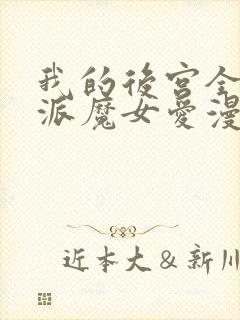 我的後宮全
派魔女愛漫
近本大&新川